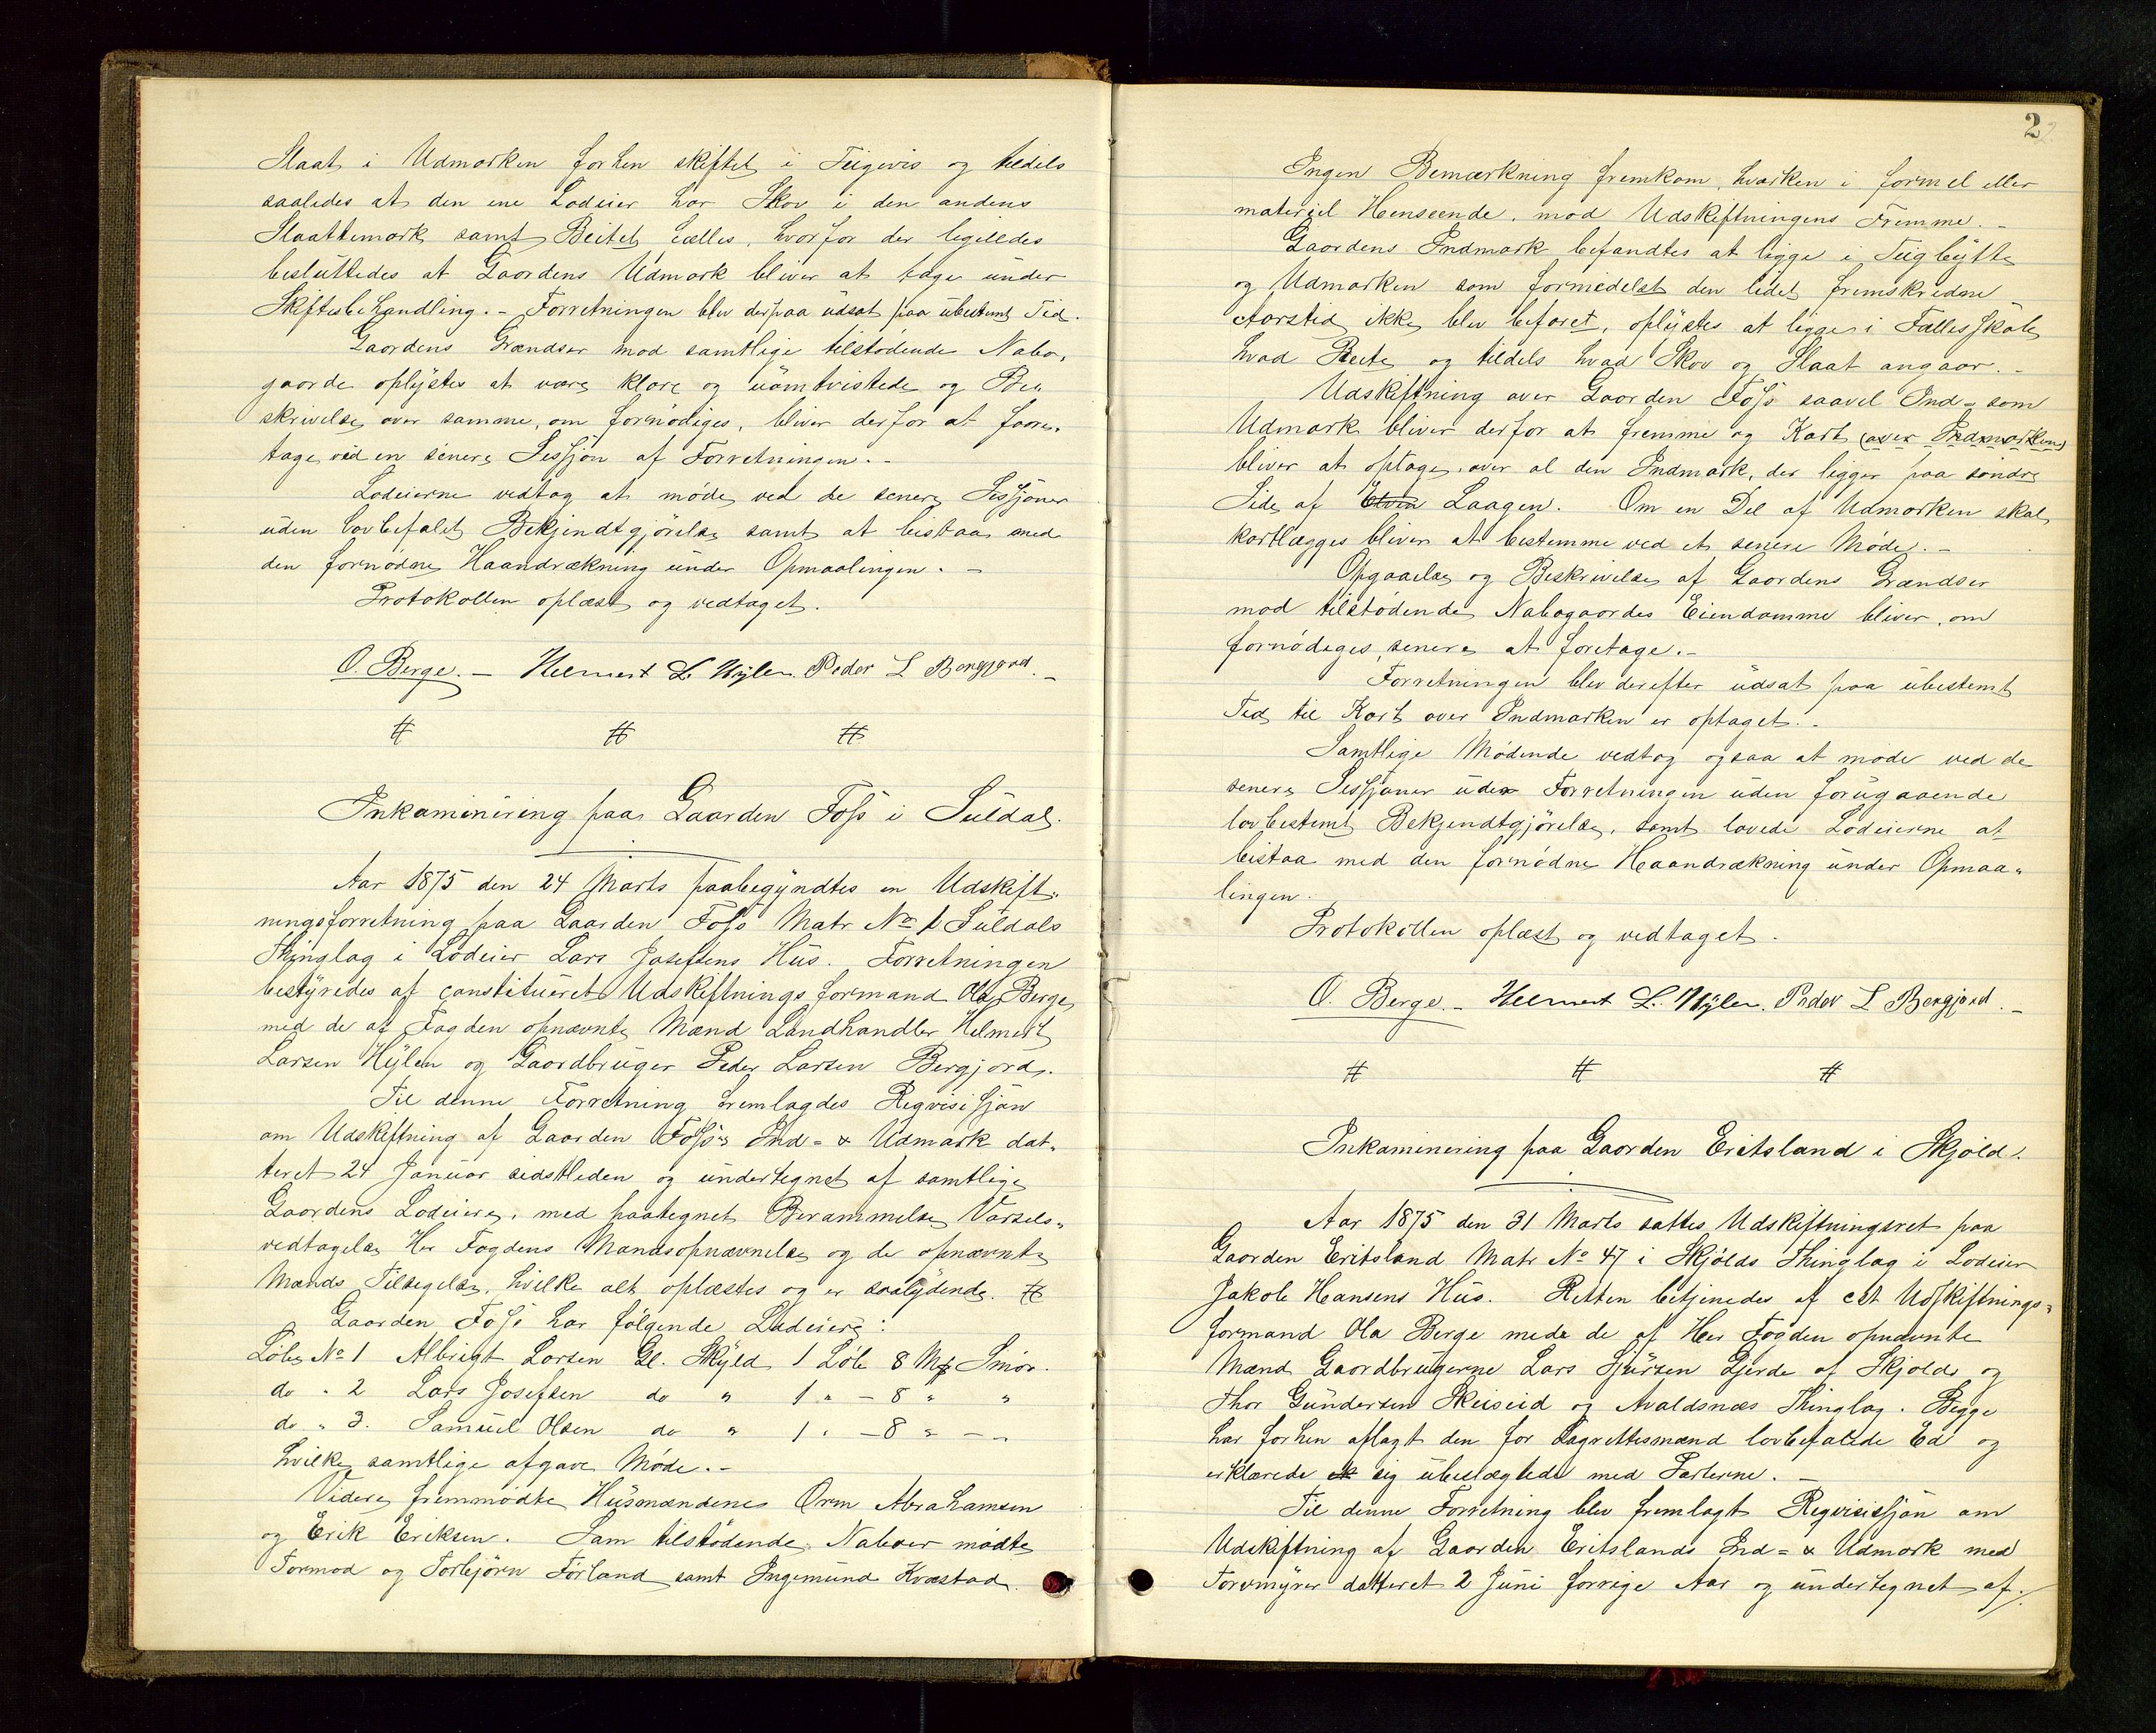 Slaat i Udmarken forhen skiftet i Teigevis og tildels
saaledes at den ene Lodeier har Skov i den andens
Slaattemark samt Beitet fælles, hvorfor det ligeledes
besluttedes at Gaardens Udmark bliver at tage under
Skiftesbehandling. – Forretningen blev derpaa udsat paa ubestemt Tid.
Gaardens Grændser mod samtlige tilstødende Nabo-
gaarde oplystes at være klare og uomtvistede og Be-
skrivelse over samme, om fornødiges, bliver derfor at fore-
tage ved en senere Sessjon af Forretningen. –
Lodeierne vedtog at møde ved de senere Sessjoner
uden lovbefalet Bekjendtgjørelse samt at bistaa med
den fornødne Haandrækning under Opmaalingen. –
Protokollen oplæst og vedtaget.
O. Berge. – Helmert L. Hylen. Peder L Bergjord. –
# # #
Inkaminering paa Gaarden Foss i Suldal.
Aar 1875 den 24 Marts paabegyndtes en Udskift-
ningsforretning paa Gaarden Foss Matr No 1 Suldals
Thinglag i Lodeier Lars Josefsens Hus. Forretningen
bestyredes af constitueret Udskiftningsformand Ola Berge
med de af Fogden opnævnte Mænd Landhandler Helmert
Larsen Hylen og Gaardbruger Peder Larsen Bergjord.
Til denne Forretning fremlagdes Reqvisisjon
om Udskiftning af Gaarden Foss's Ind= & Udmark dat-
teret 24 Januar sidstleden og undertegnet af samtlige
Gaardens Lodeiere, med paategnet Berammelse, Varsels-
vedtagelse Her Fogdens Mandsopnævnelse og de opnævnte
Mænds Tilsigelse, hvilke alt oplæstes og er saalydende. #
Gaarden Foss har følgende Lodeiere:
Løbe No 1 Albrigt Larsen Gl. Skyld 1 Løb 8 Mk Smør.
do " 2 Lars Josefsen do " 1 " – 8 " "
do " 3. Samuel Olsen do " 1 " – 8 " – "
hvilke samtlige afgave Møde. –
Videre fremmødte Husmændene Orm Abrahamsen
og Erik Eriksen. Som tilstødende Naboer mødte
Tormod og Torbjørn Førland samt Ingemund Kvæstad.
2
Ingen Bemærkning fremkom, hvarken i formel eller
materiel Henseende, mod Udskiftningens Fremme. –
Gaardens Indmark befandtes at ligge i Teigbytte
og Udmarken som formedelst den lidet fremskredne
Aarstid ikke blev befaret, oplystes at ligge i Fællesskab
hvad Beite og tildels hvad Skov og Slaat angaar. –
Udskiftning over Gaarden Foss saavel Ind= som
Udmark bliver derfor at fremme og Kart (over Indmarken)
bliver at optage over al den Indmark, der ligger paa søndre
Side af Elven Laagen. Om en Del af Udmarken skal
kortlægges bliver at bestemme ved et senere Møde. –
Opgaaelse og Beskrivelse af Gaardens Grændser
mod tilstødende Nabogaardes Eiendomme bliver, om
fornødiges, senere at foretage. –
Forretningen blev derefter udsat paa ubestemt
Tid til Kart over Indmarken er optaget. –
Samtlige Mødende vedtog ogsaa at møde ved de
senere Sessjoner under Forretningen uden forugaaende
lovbestemt Bekjendtgjørelse, samt lovede Lodeierne at
bistaa med den fornødne Haandrækning under Opmaa-
lingen.
Protokollen oplæst og vedtaget.
O. Berge. – Helmert L. Hylen. Peder L Bergjord. –
# # #
Inkaminering paa Gaarden Eritsland i Skjold.
Aar 1875 den 31 Marts sattes Udskiftningsret paa
Gaarden Eritsland Matr No 47 i Skjolds Thinglag i Lodeier
Jakob Hansens Hus. Retten betjenedes af cst Udskiftnings-
formand Ola Berge med de af Her Fogden opnævnte
Mænd Gaardbrugerne Lars Sjursen Gjerde af Skjold og
Thor Gundersen Skeiseid og Avaldsnæs Thinglag. Begge
har forhen aflagt den for Lagrettesmænd lovbefalede Ed og
erklærede sig ubeslægtede med Parterne. –
Til denne Forretning blev fremlagt Reqvisissjon om
Udskiftning af Gaarden Eritslands Ind= & Udmark med
Torvmyrer datteret 2 Juni forrige Aar og undertegnet af